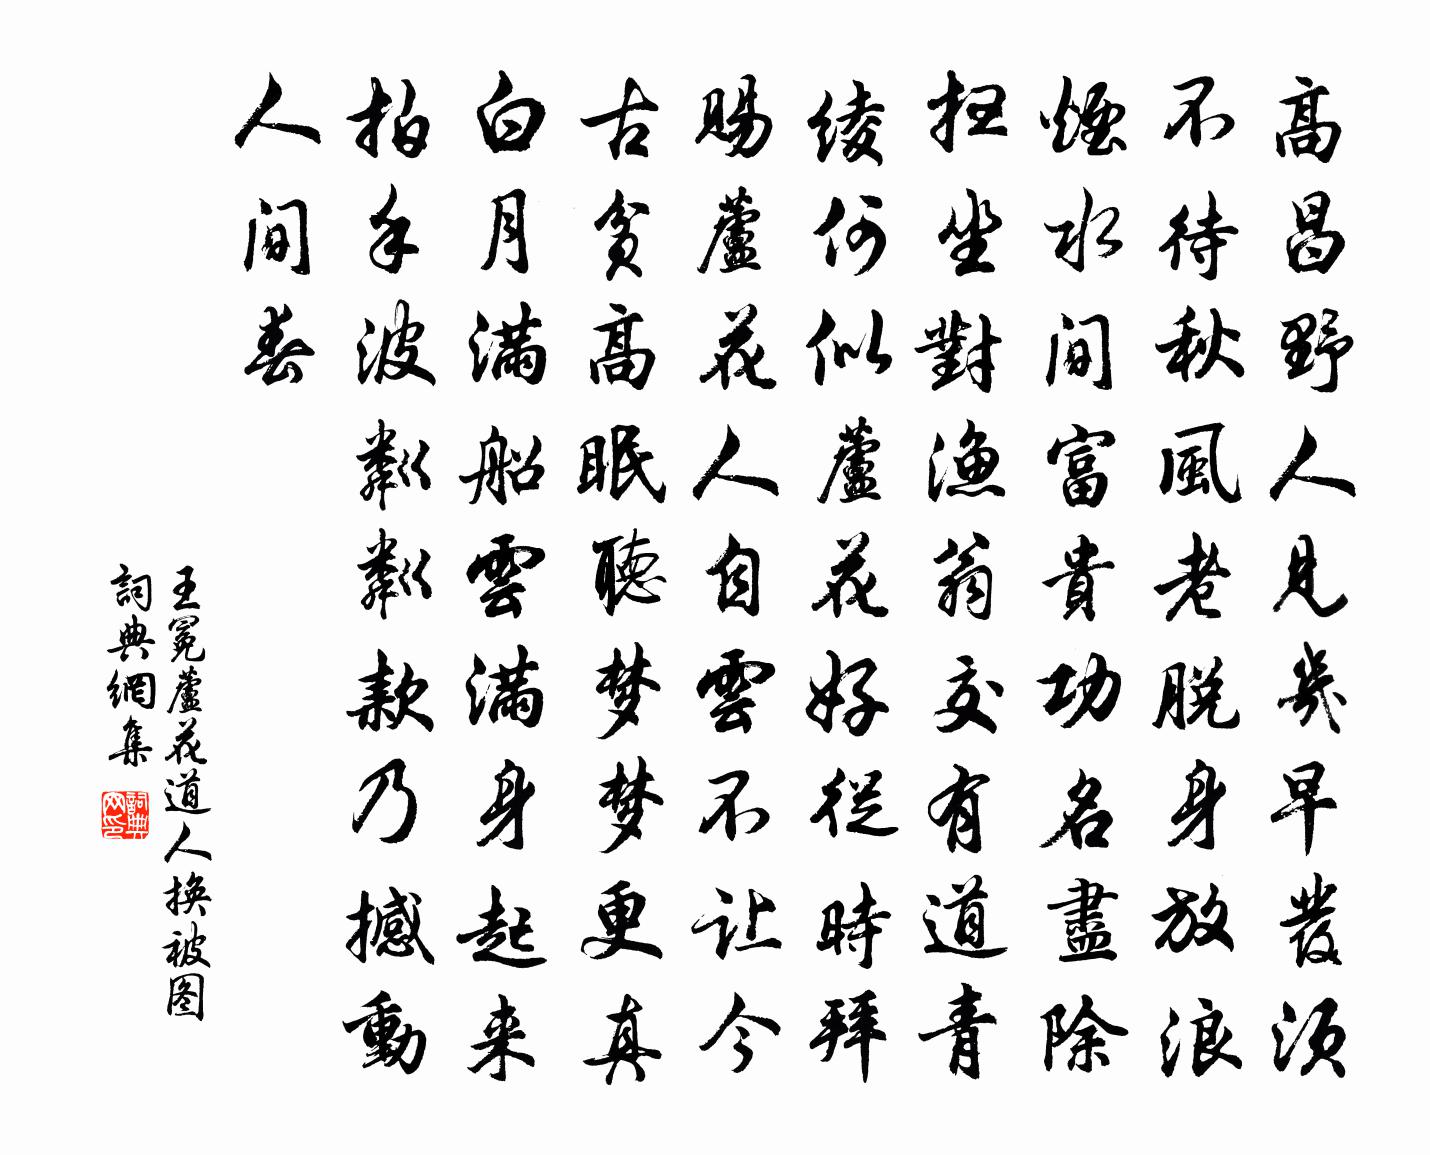 高昌野人見幾早發須
不待秋風老脱身放浪
煙水間富貴功名盡除
扫坐對漁翁交有道青
綾何似蘆花好從時拜
賜蘆花人自雲不让今
古貧高眠聽梦梦更真
白月滿船雲滿身起来
拍手波粼粼款乃撼動
人間春
王冕蘆花道人換被图
詞典網集
詞典网印